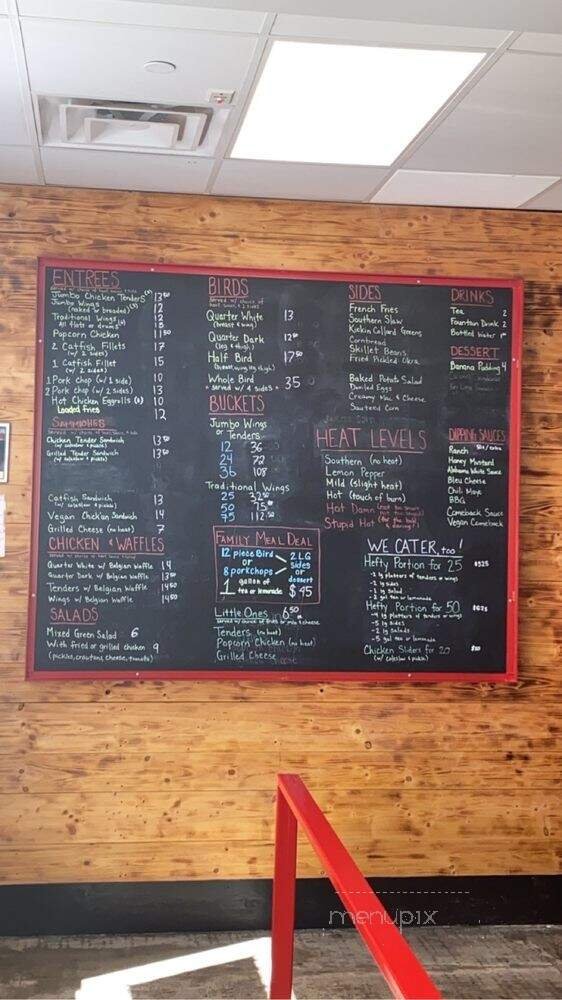 ENTREES
Jumbo Chicken Tenders 13 50
Jumbo Wings 12
(naked or breaded)
Traditional Wings 12
All flats or drums
Popcorn Chicken 11 50
2 Catfish Fillets 17
(w/ 2 sides)
1 Catfish Fillet 15
(w/ 2 sides)
1 Pork Chop (w/ 1 side) 10
2 Pork chop (w/ 2 sides) 13
Hot Chicken Eggrolls 10
Loaded fries 12
SANDWICHES
Chicken Tender Sandwich 13 50
(w/ coleslaw & pickle)
Grilled Tender Sandwich 13 50
(w/ coleslaw & pickle)
Catfish Sandwich 13
(w/ coleslaw & pickle)
Vegan Chick'an Sandwich 14
Grilled Cheese (no heat) 7
CHICKEN & WAFFLES
Quarter White w/ Belgian Waffle 14
Quarter Dark w/ Belgian Waffle 13 50
Tenders w/ Belgian Waffle 14 50
Wings w/ Belgian Waffle 14 50
SALADS
Mixed Green Salad 6
With fried or grilled chicken 9
(pickles, croutons, cheese, tomato)
BIRDS
Served w/ choice of
Quarter White 13
(breast & wing)
Quarter Dark 12 50
(leg & thigh)
Half Bird 17 50
(breast, wing, leg, thigh)
Whole Bird 35
* served w/ 4 sides *
BUCKETS
Jumbo Wings
or Tenders
12 36
24 72
36 108
Traditional Wings
25 32 50
50 75
75 112 50
FAMILY MEAL DEAL
12 piece Bird
or
8 porkchops
2 LG
sides
or
dessert
1 gallon of
tea or lemonade
$45
Little Ones 6 50
Tenders (no heat)
Popcorn Chicken (no heat)
Grilled Cheese
SIDES
French Fries
Southern Slaw
Kickin Collard Greens
Cornbread
Skillet Beans
Fried Pickled Okra
Baked Potato Salad
Deviled Eggs
Creamy Mac & Cheese
Sauteed Corn
HEAT LEVELS
Southern (no heat)
Lemon Pepper
Mild (slight heat)
Hot (touch of burn)
Hot Damn
Stupid Hot
WE CATER, too!
Hefty Portion for 25 $325
-2 lg platters of tenders or wings
-2 lg sides
-1 lg salad
-2 gal tea or lemonade
Hefty Portion for 50 $625
-4 lg platters of tenders or wings
-5 lg sides
-2 lg salads
-5 gal tea or lemonade
Chicken Sliders for 20
(w/ coleslaw & pickle)
DRINKS
Tea 2
Fountain Drink 2
Bottled Water
DESSERT
Banana Pudding 4
DIPPING SAUCES
Ranch
Honey Mustard
Alabama White Sauce
Bleu Cheese
Chili Mayo
BBQ
Comeback Sauce
Vegan Comeback
menupix